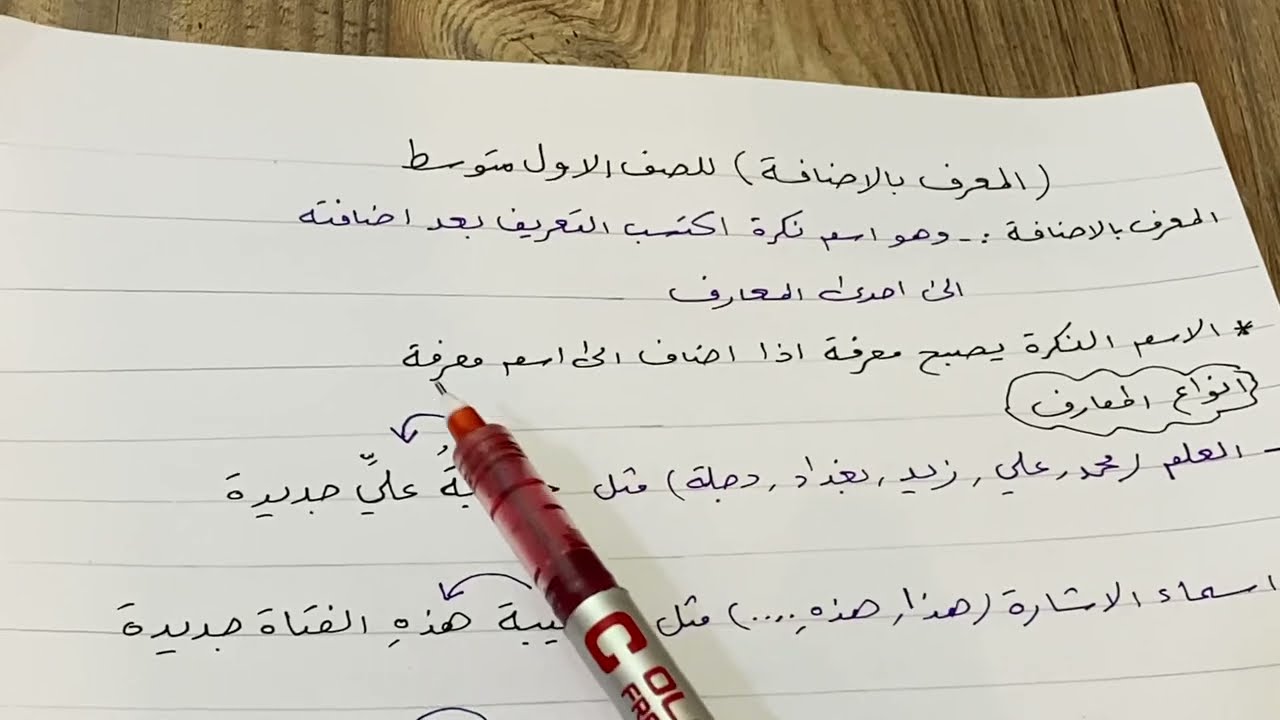 (المعرف بالاضافة) للصف الاول متوسط
المعرف بالاضافة :- وهو اسم نكرة اكتسب التعريف بعد اضافته
الى احدى المعارف
* الاسم النكرة يصبح معرفة اذا اضاف الى اسم معرفة
انواع المعارف
- العلم (محمد, علي, زيد, بغداد, دجلة) مثل عليٍّ جديدة
اسماء الاشارة (هذا, هذهِ....) مثل هذهِ الفتاة جديدة
C
OL
FR